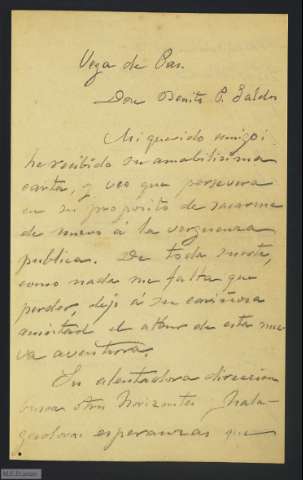 Vega de Pas.
Don Benito P. Galdós
Mi querido amigo:
he recibido su amabilísima
carta, y veo que persevera
en su propósito de sacarme
de nuevo á la vergüenza
publica. De toda suerte,
como nada me falta que
perder, dejo á su cariñosa
amistad el albur de esta nue-
va aventura.
Su alentadora direccion
busca otros horizontes, hala-
gadoras esperanzas que